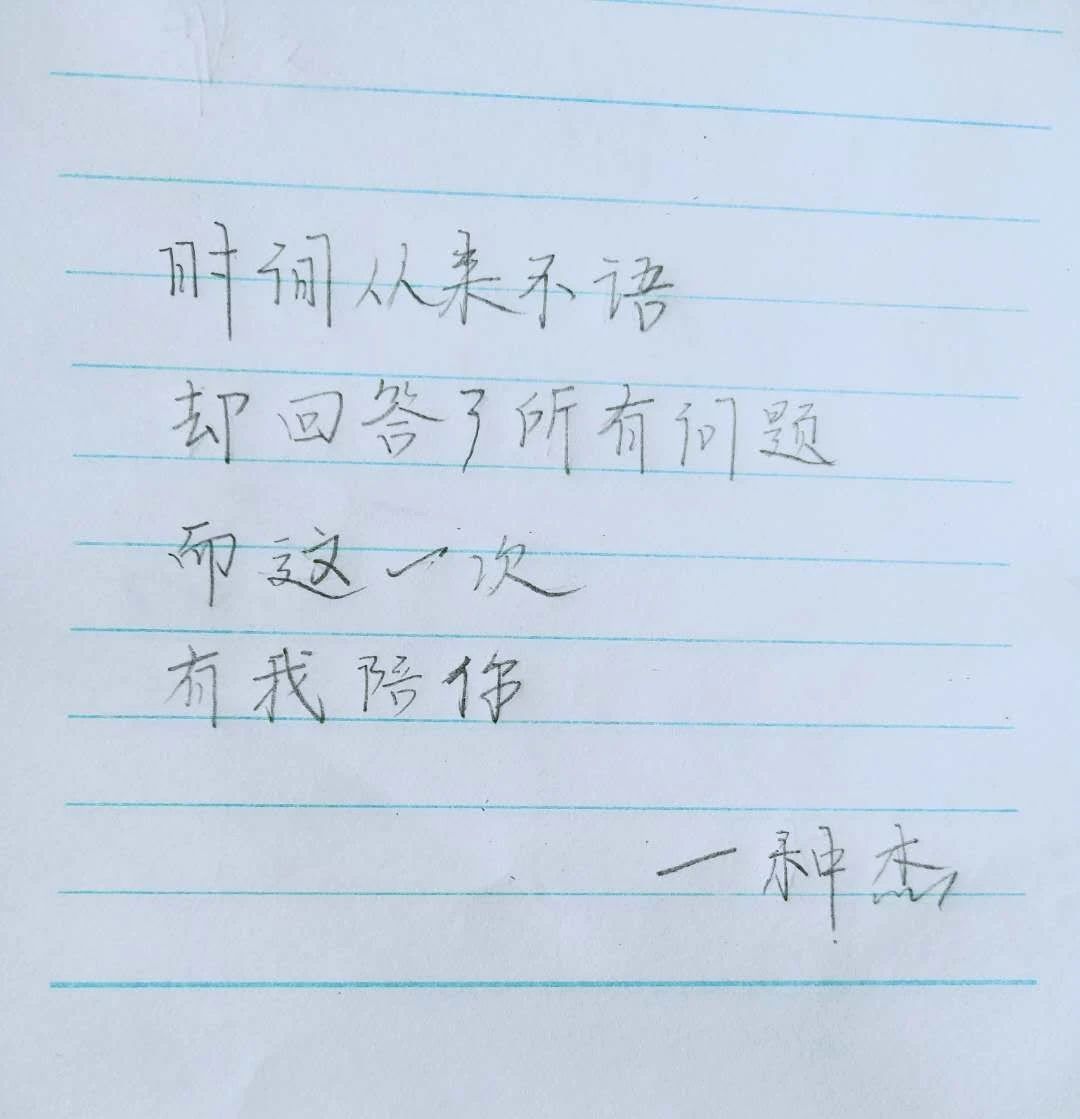 时间从来不语
却回答了所有问题
而这一次
有我陪你
一种杰